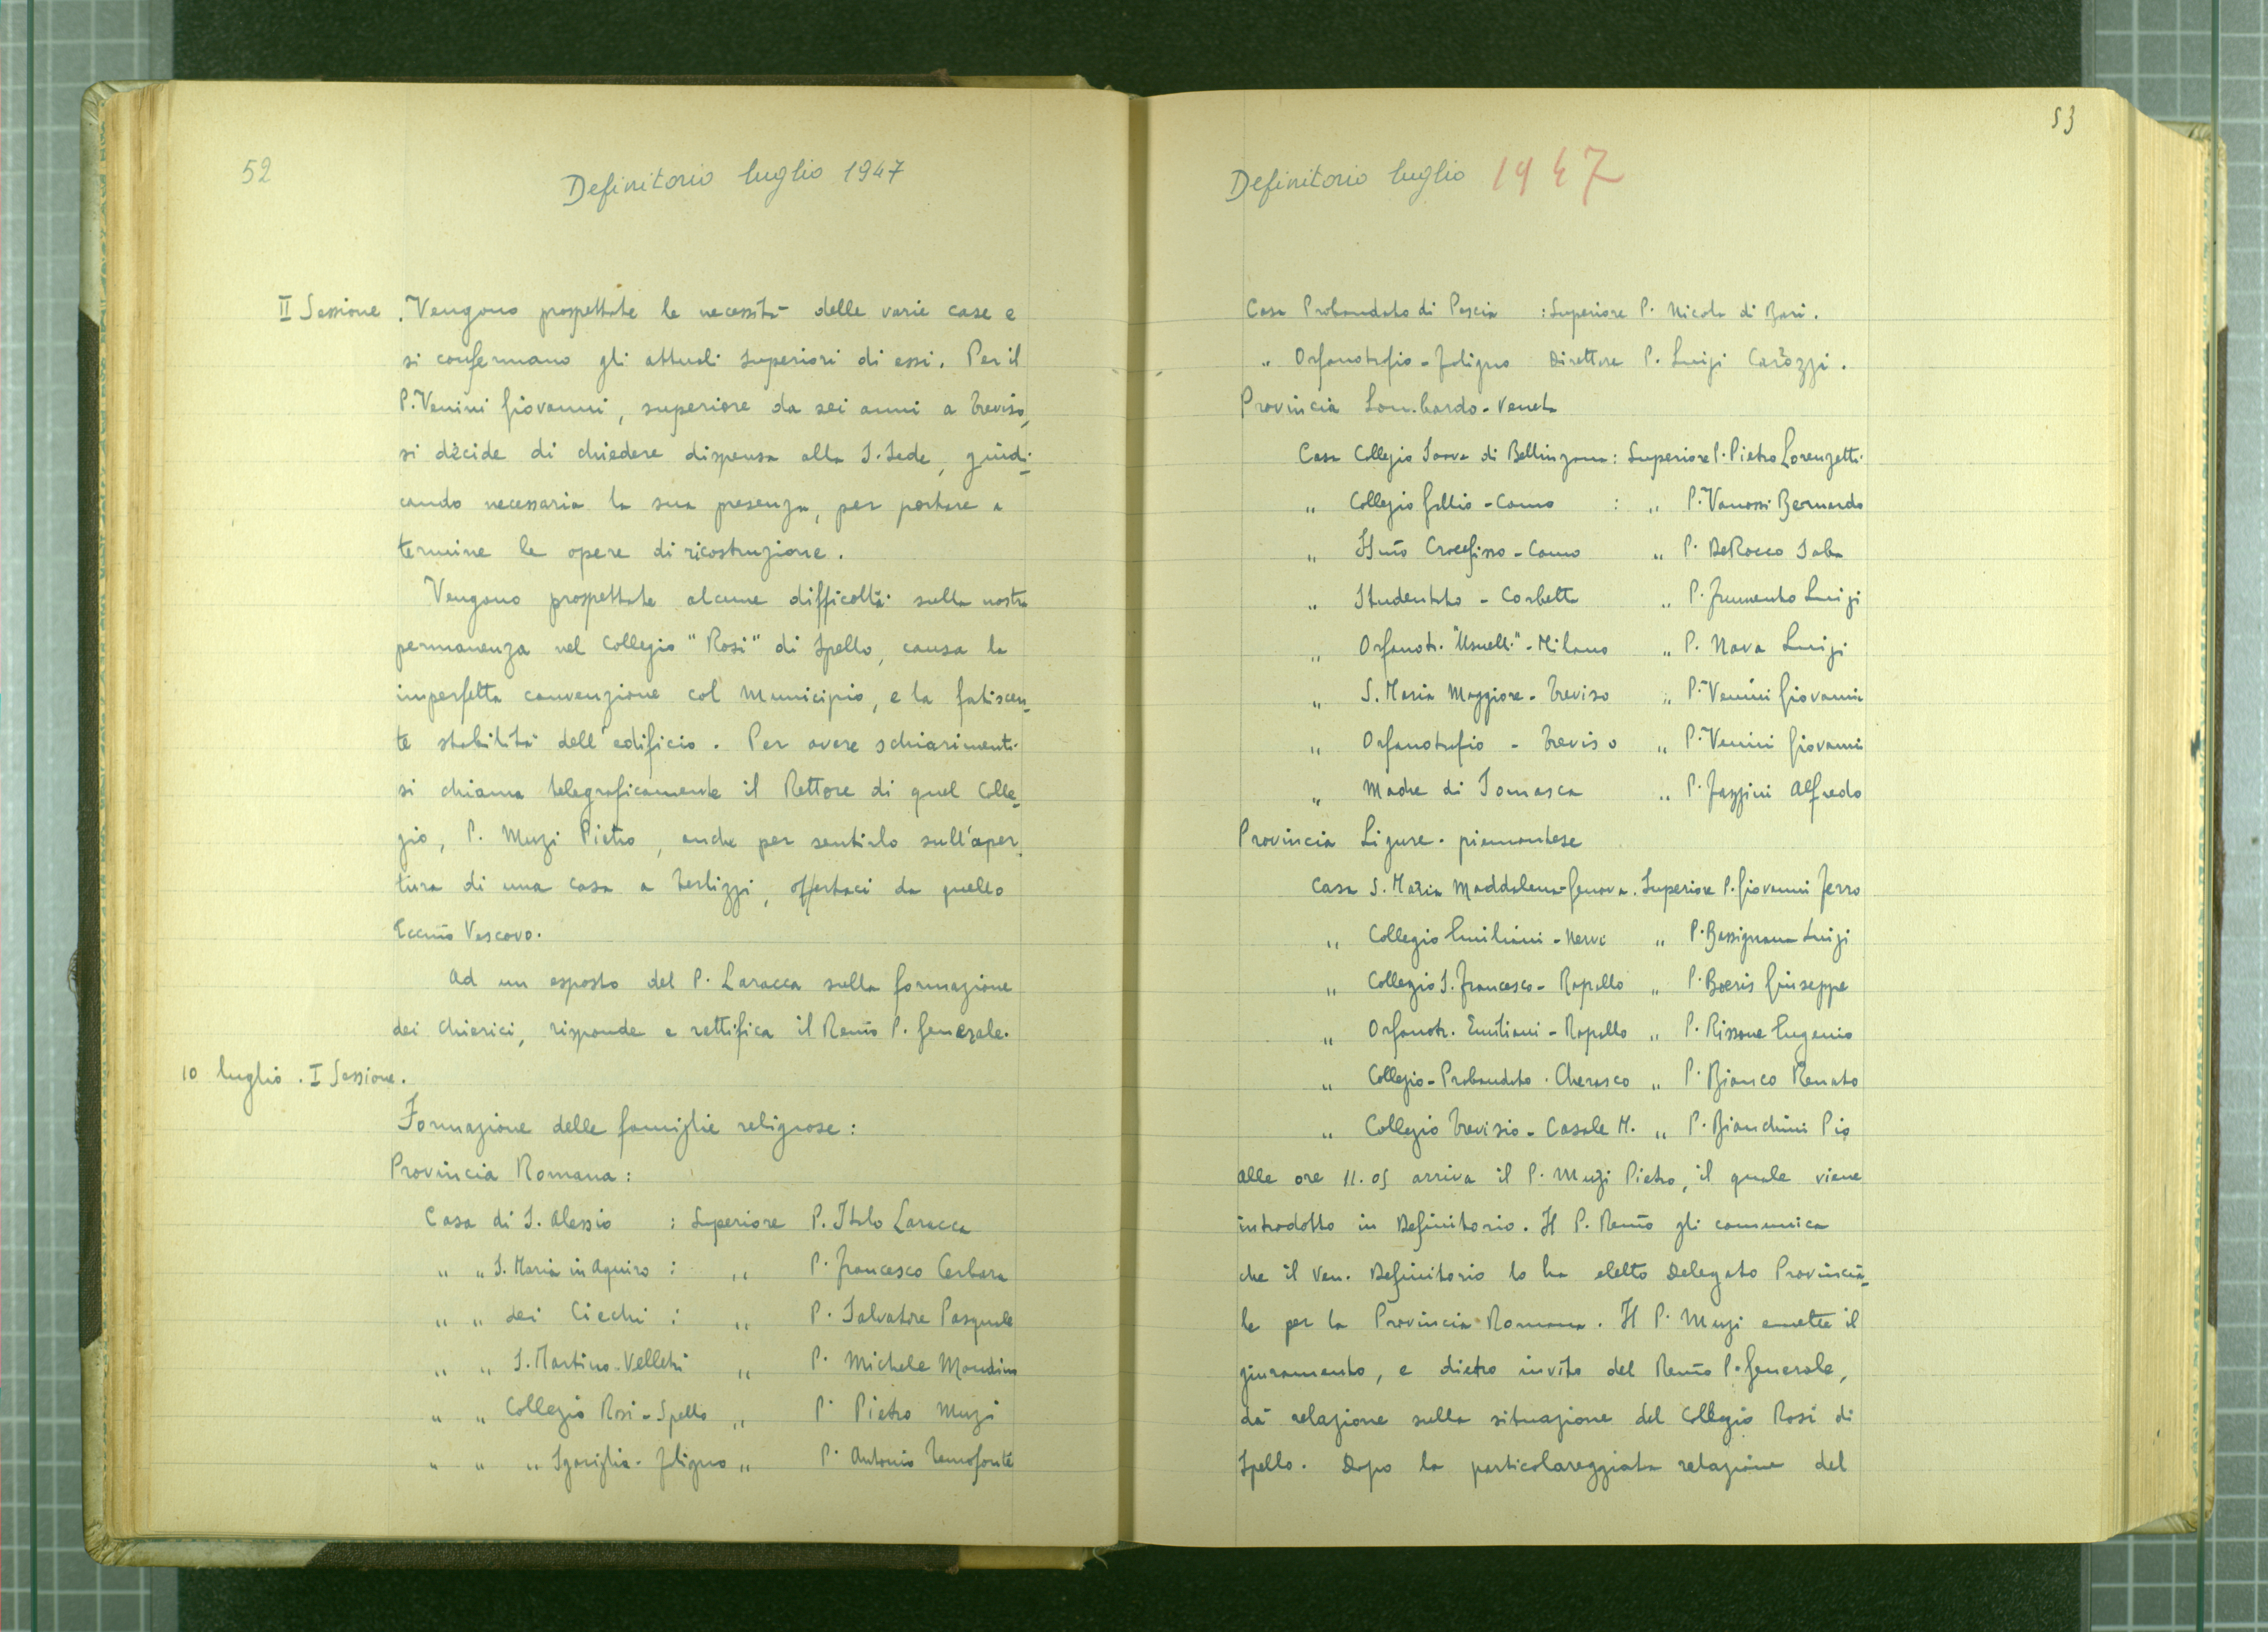 52
Definitorio luglio 1947
II Sessione. Vengono prospettate le necessità delle varie case e
si confermano gli attuali Superiori di essi. Per il
P. Venini Giovanni, superiore da sei anni a Treviso,
si decide di chiedere dispensa alla S. Sede, giudi-
cando necessaria la sua presenza, per portare a
termine le opere di ricostruzione.
Vengono prospettate alcune difficoltà sulla nostra
permanenza nel Collegio "Rosi" di Spello, causa la
imperfetta convenzione col Municipio, e la fatiscen-
te stabilità dell'edificio. Per avere schiarimenti
si chiama telegraficamente il Rettore di quel Colle-
gio, P. Muzi Pietro, anche per sentirlo sull'aper-
tura di una casa a Terlizzi, offertaci da quello
Eccmo Vescovo.
Ad un esposto del P. Laracca sulla formazione
dei Chierici, risponde e rettifica il Revmo P. Generale.
10 luglio. I Sessione.
Formazione delle famiglie religiose:
Provincia Romana:
Casa di S. Alessio : Superiore P. Italo Laracca
" " S. Maria in Aquiro : " P. Francesco Cerbara
" " dei Ciechi : " P. Salvatore Pasquale
" " S. Martino-Velletri " P. Michele Mondino
" " Collegio Rosi-Spello " P. Pietro Muzi
" " " Sgariglia-Foligno " P. Antonio Temofonte
53
Definitorio luglio 1947
Casa Probandato di Pescia : Superiore P. Nicola di Bari.
" Orfanotrofio-Foligno Direttore P. Luigi Carozzi.
Provincia Lombardo-Veneta
Casa Collegio Soave di Bellinzona: Superiore P. Pietro Lorenzetti
" Collegio Gallio-Como : " P. Vanossi Bernardo
" SSmo Crocefisso-Como " P. DeRocco Saba
" Studentato-Corbetta " P. Frumento Luigi
" Orfanotr. "Usuelli"-Milano " P. Nava Luigi
" S. Maria Maggiore-Treviso " P. Venini Giovanni
" Orfanotrofio - Treviso " P. Venini Giovanni
" Madre di Somasca " P. Fazzini Alfredo
Provincia Ligure-piemontese
Casa S. Maria Maddalena-Genova. Superiore P. Giovanni Ferro
" Collegio Emiliani-Nervi " P. Bassignana Luigi
" Collegio S. Francesco-Rapallo " P. Boeris Giuseppe
" Orfanotr. Emiliani-Rapallo " P. Rissone Eugenio
" Collegio-Probandato. Cherasco " P. Bianco Renato
" Collegio Trevisio-Casale M. " P. Bianchini Pio
Alle ore 11.05 arriva il P. Muzi Pietro, il quale viene
introdotto in Definitorio. Il P. Revmo gli comunica
che il Ven. Definitorio lo ha eletto Delegato Provincia-
le per la Provincia Romana. Il P. Muzi emette il
giuramento, e dietro invito del Revmo P. Generale,
dà relazione sulla situazione del Collegio Rosi di
Spello. Dopo la particolareggiata relazione del